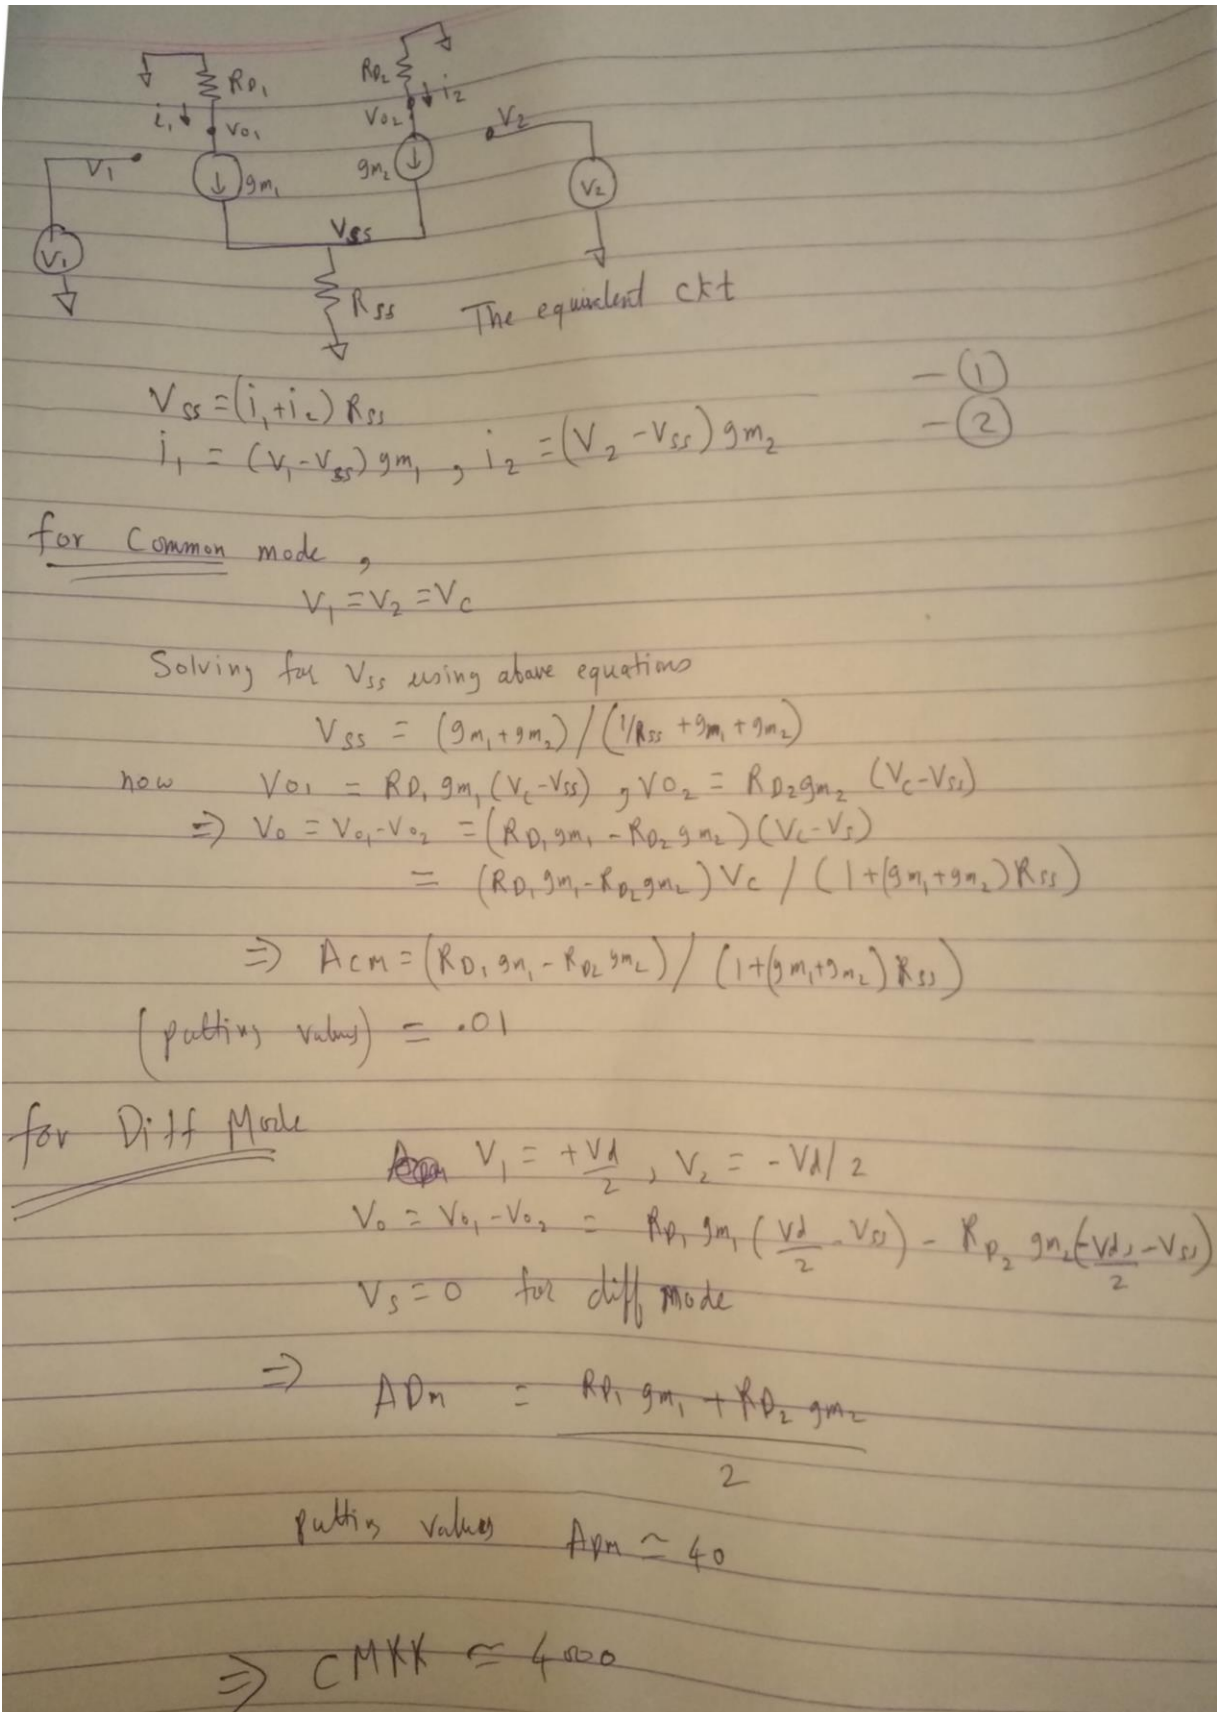 RD1
RD2
i1
i2
Vo1
Vo2
V1
gm1
gm2
V2
V1
V2
Vss
Rss
The equivalent ckt
Vss = (i1+i2) Rss - ①
i1 = (V1-Vss) gm1, i2 = (V2-Vss) gm2 - ②
for Common mode,
V1 = V2 = Vc
Solving for Vss using above equations
Vss = (gm1+gm2)/(1/Rss + gm1 + gm2)
now Vo1 = RD1 gm1 (Vc-Vss), VO2 = RD2 gm2 (Vc-Vss)
⇒ Vo = Vo1-Vo2 = (RD1 gm1 - RD2 gm2)(Vc-Vs)
= (RD1 gm1 - RD2 gm2) Vc / (1+(gm1+gm2) Rss)
⇒ ACM = (RD1 gm1 - RD2 gm2) / (1+(gm1+gm2) Rss)
(putting values) = .01
for Diff Mode
V1 = +Vd/2, V2 = -Vd/2
Vo = Vo1-Vo2 = RD1 gm1 (Vd/2 - Vss) - RD2 gm2 (-Vds/2 - Vss)
Vs = 0 for diff mode
⇒ ADM = (RD1 gm1 + RD2 gm2)/2
putting values ADM ≃ 40
⇒ CMRR ≃ 4000